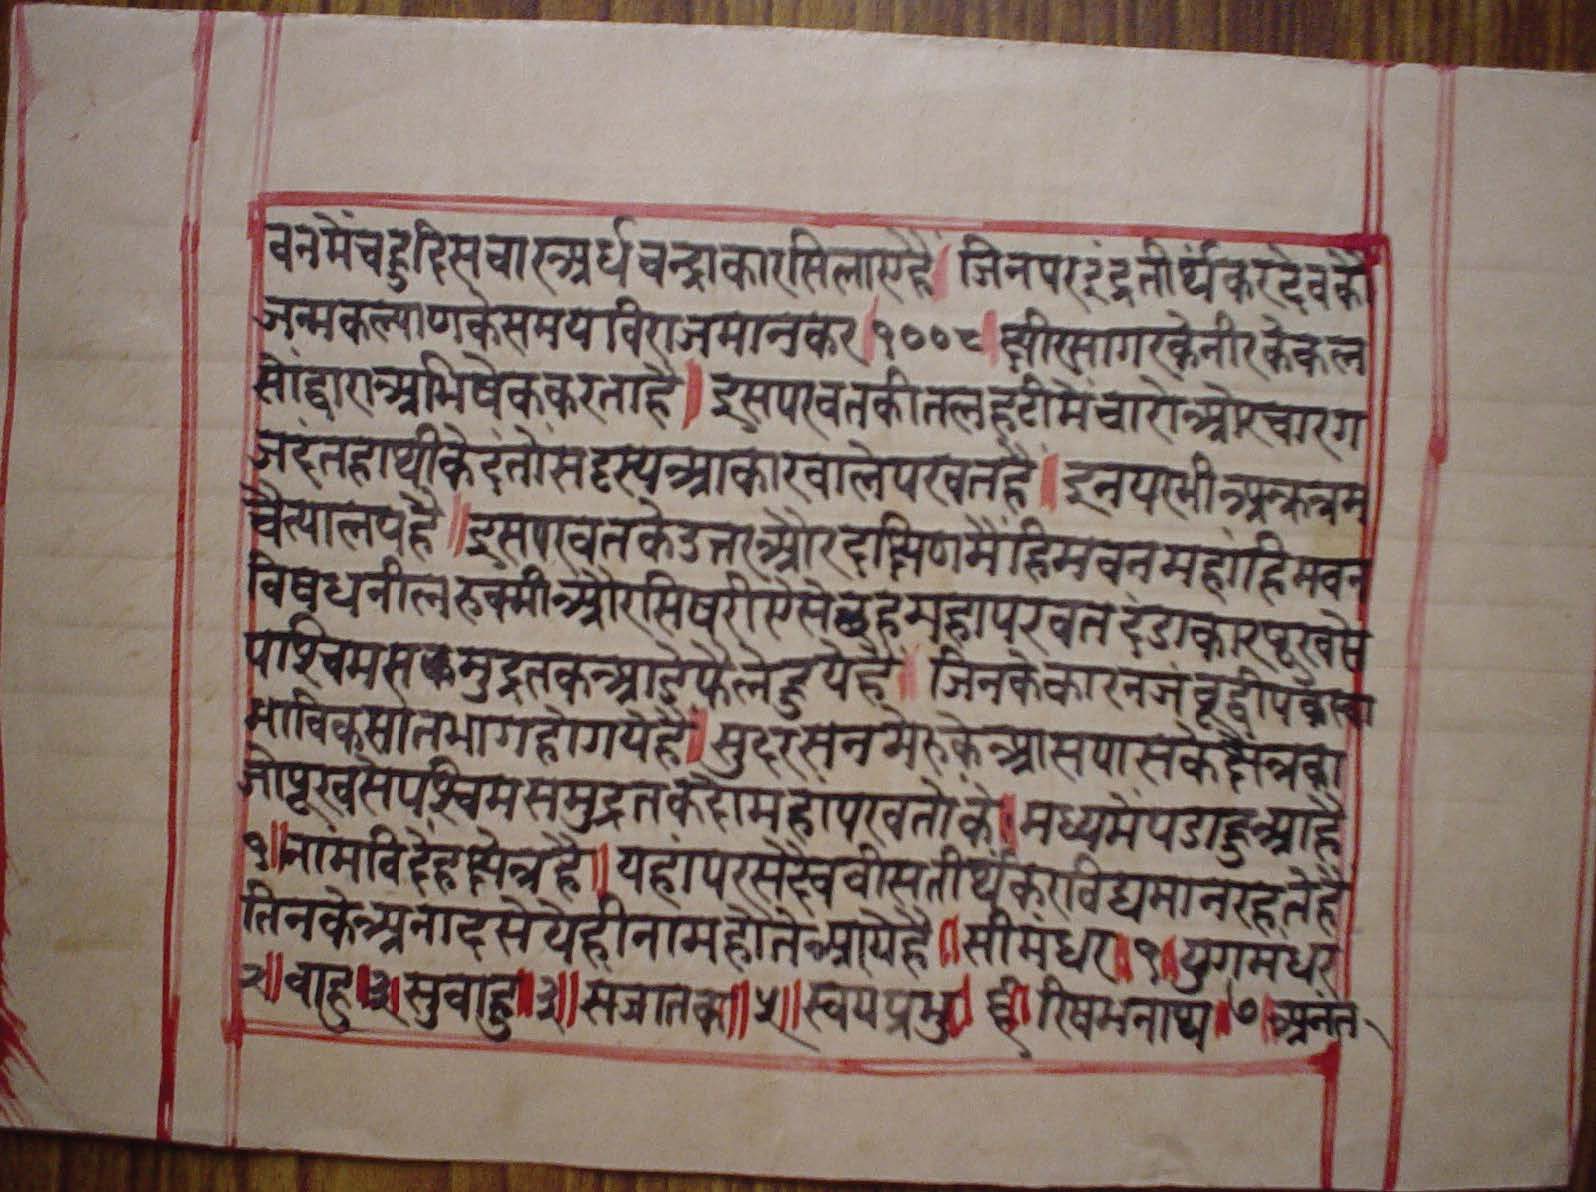 वनमैं चहुदिस चार अर्ध चन्द्राकार सिलाए है । जिन पर इंद्र तीर्थंकर देव कौ
जन्म कल्याण के समय विराजमान कर । १००८ । क्षीर सागर के नीर के कल
सों द्वारा अभिषेक करता है । इस परवत की तलहटी में चारो और चार ग
जदंत हाथी के दंतों सदृस्य आकार वाले परवत है । इन पर भी अक्रत्रम
चैत्यालय है ॥ इस परवत के उत्तर और दक्षिण मैं हिमवन महांहिमवन
निषध नील रुक्मी और सिषरी ऐसे छह महा परवत दंडाकार पूरव से
पश्चिम समुद्र तक आडे फैले हुये है ॥ जिन के कारन जंबूद्वीप के स्वा
भाविक सात भाग हो गये है । सुदरसन मेरु के आसपास के क्षेत्र का
जो पूरव से पश्चिम समुद्र तक दो महा परवतों के । मध्य में पडा हुआ है
१ ॥ नांम विदेह क्षेत्र है ॥ यहां पर सदैव वीस तीर्थंकर विद्यमान रहते है
तिन के अनाद से ये ही नाम होते आये है ॥ सीमंधर ॥ १ ॥ युगमंधर
२ ॥ वाहु ॥ ३ ॥ सुवाहु ॥ ३ ॥ संजातक ॥ ५ ॥ स्वयंप्रभु । ६ । रिषभनाथ ॥ ७ ॥ अनंत